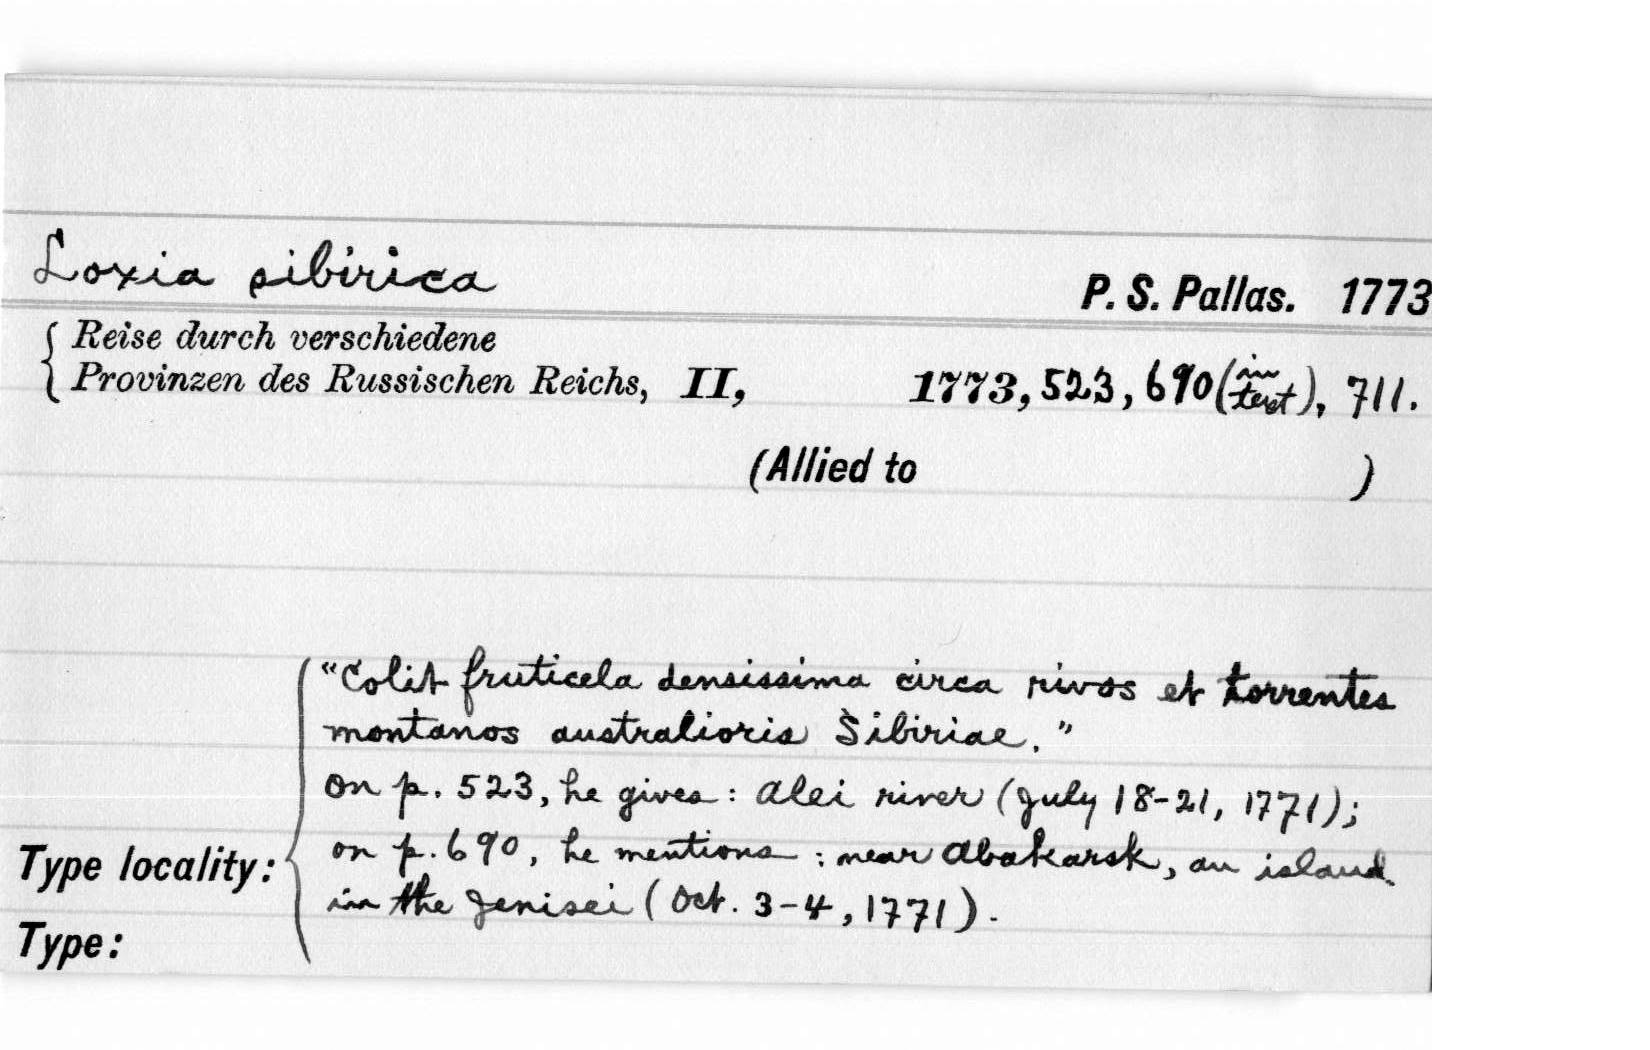 Loxia sibirica
P. S. Pallas. 1773
Reise durch verschiedene
Provinzen des Russischen Reichs, II, 1773, 523, 690 (in text), 711.
(Allied to )
"Colit fruticela densissima circa rivos et torrentes
montanos australioris Sibiriae."
On p. 523, he gives: Alei river (July 18-21, 1771);
on p. 690, he mentions: near Abakansk, an island
in the Jenisei (Oct. 3-4, 1771).
Type locality:
Type: